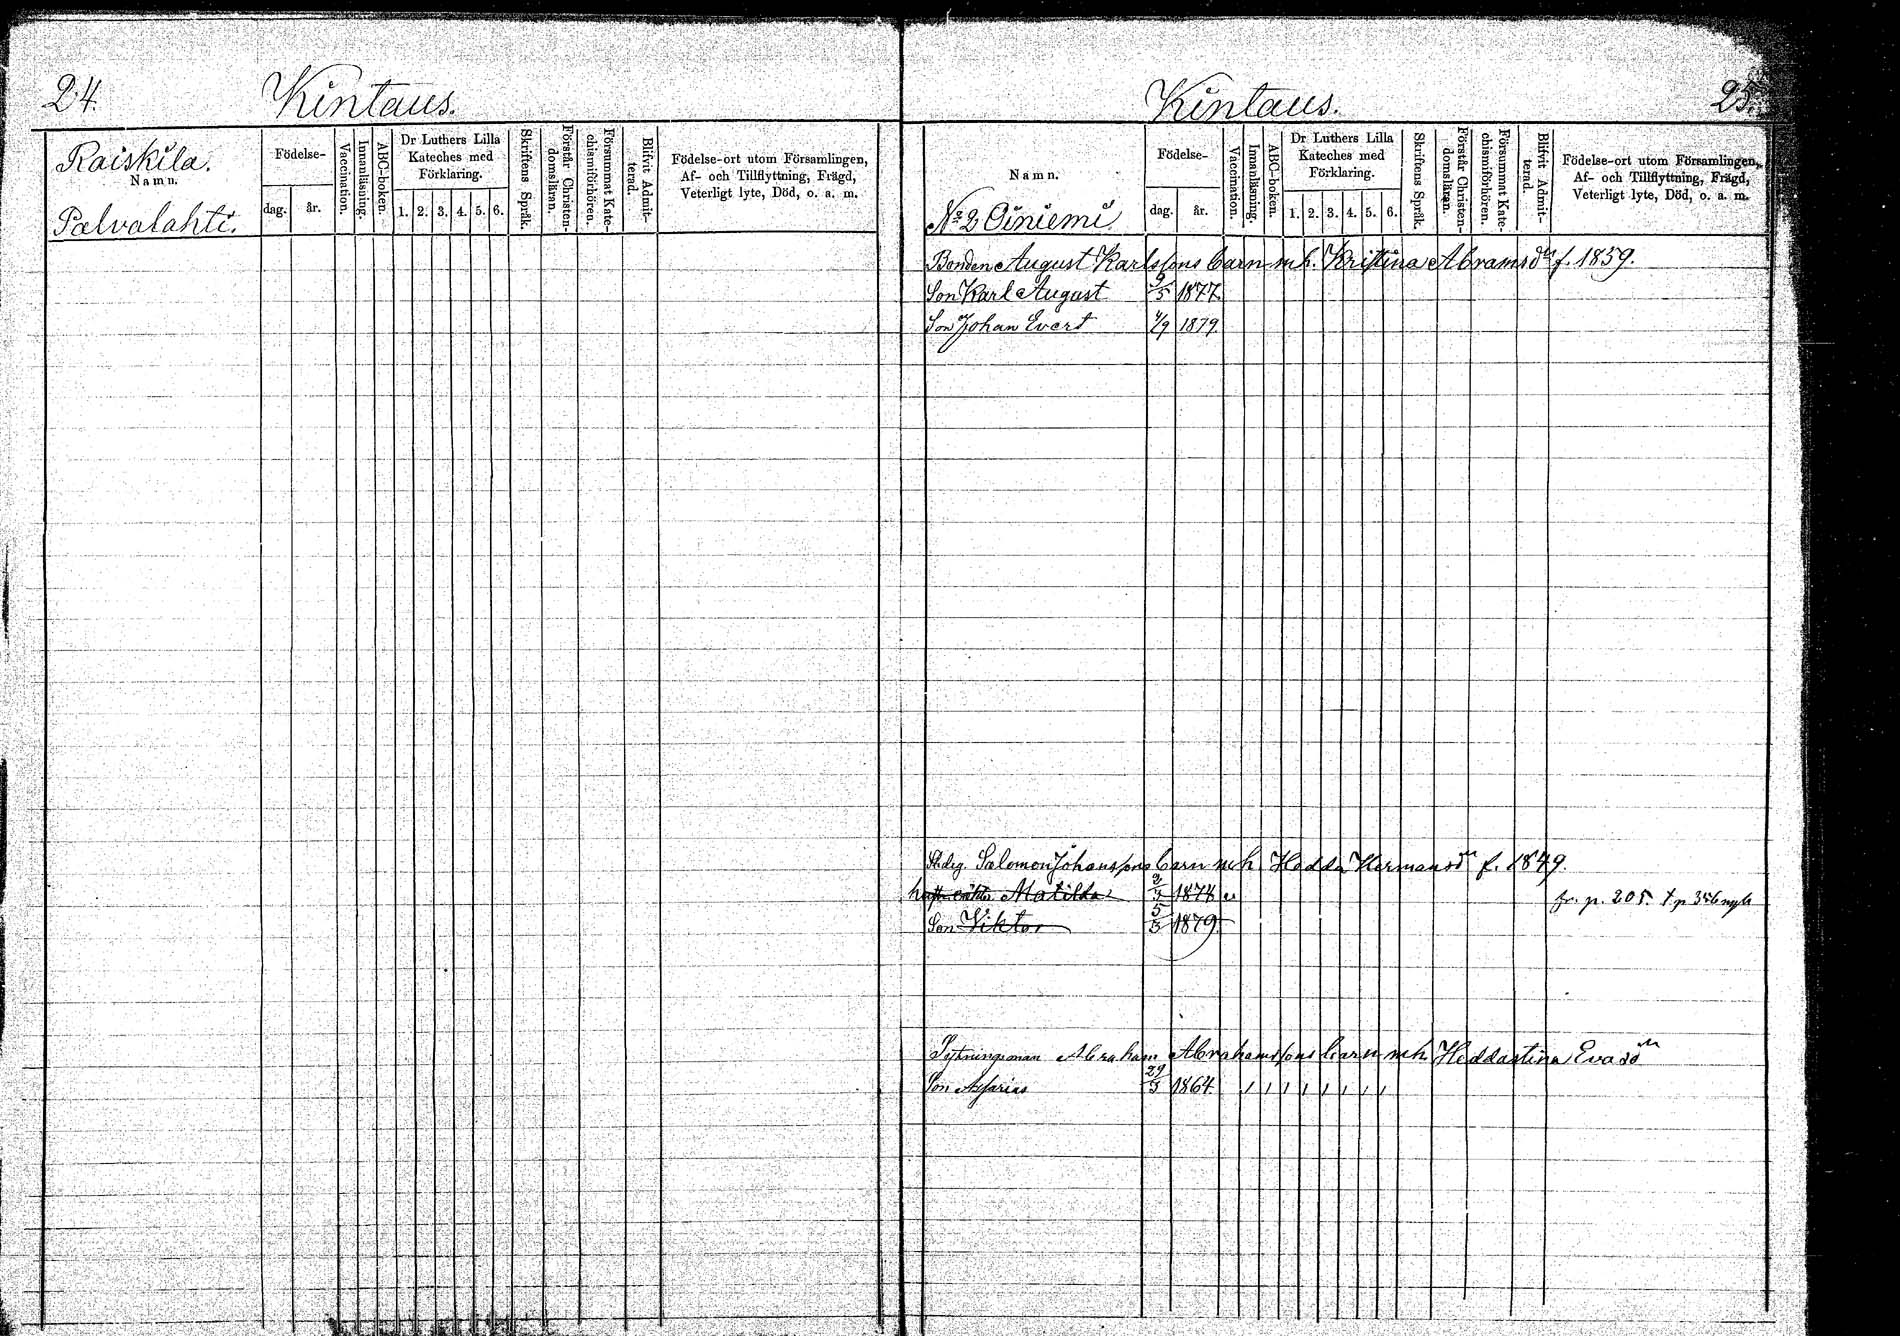 24.
Kintaus.
Raiskila.
Namn.
Palvalahti.
Födelse-
dag. år.
Vaccination.
Innanläsning.
ABC-boken.
Dr Luthers Lilla
Kateches med
Förklaring.
1. 2. 3. 4. 5. 6.
Skriftens Språk.
Förstår Christen-
domsläran.
Försummat Kate-
chismiförhören.
Blifvit Admit-
terad.
Födelse-ort utom Församlingen,
Af- och Tillflyttning, Frägd,
Veterligt lyte, Död, o. a. m.
Kintaus.
25.
Namn.
No 2 Oiniemi
Födelse-
dag. år.
Vaccination.
Innanläsning.
ABC-boken.
Dr Luthers Lilla
Kateches med
Förklaring.
1. 2. 3. 4. 5. 6.
Skriftens Språk.
Förstår Christen-
domsläran.
Försummat Kate-
chismiförhören.
Blifvit Admit-
terad.
Födelse-ort utom Församlingen,
Af- och Tillflyttning, Frägd,
Veterligt lyte, Död, o. a. m.
Bonden August Karlssons barn mh. Kristina Abramsdn f. 1839.
Son Karl August 5/5 1877.
Son Johan Evert 4/9 1879.
Salomon Johanssons barn mh Hedda Hermansdn f. 1849.
Matilda 2/3 1878 fr. p. 205. † p 356
Son Viktor 5/3 1879.
Abraham Abrahamssons barn mh Heddastina Evasdn
Son Asarias 29/3 1864. / / / / / / / /